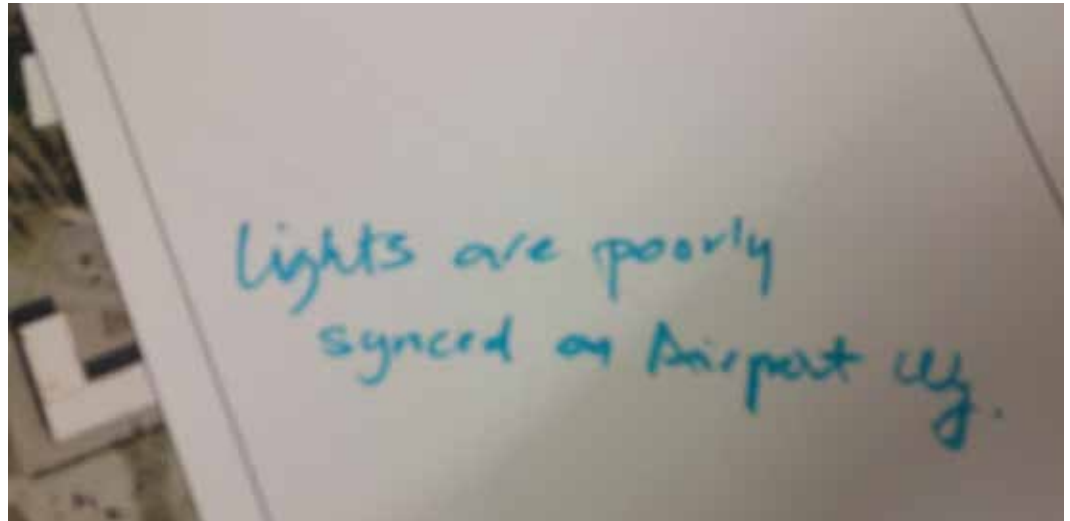 Lights are poorly
synced on Airport Wy.